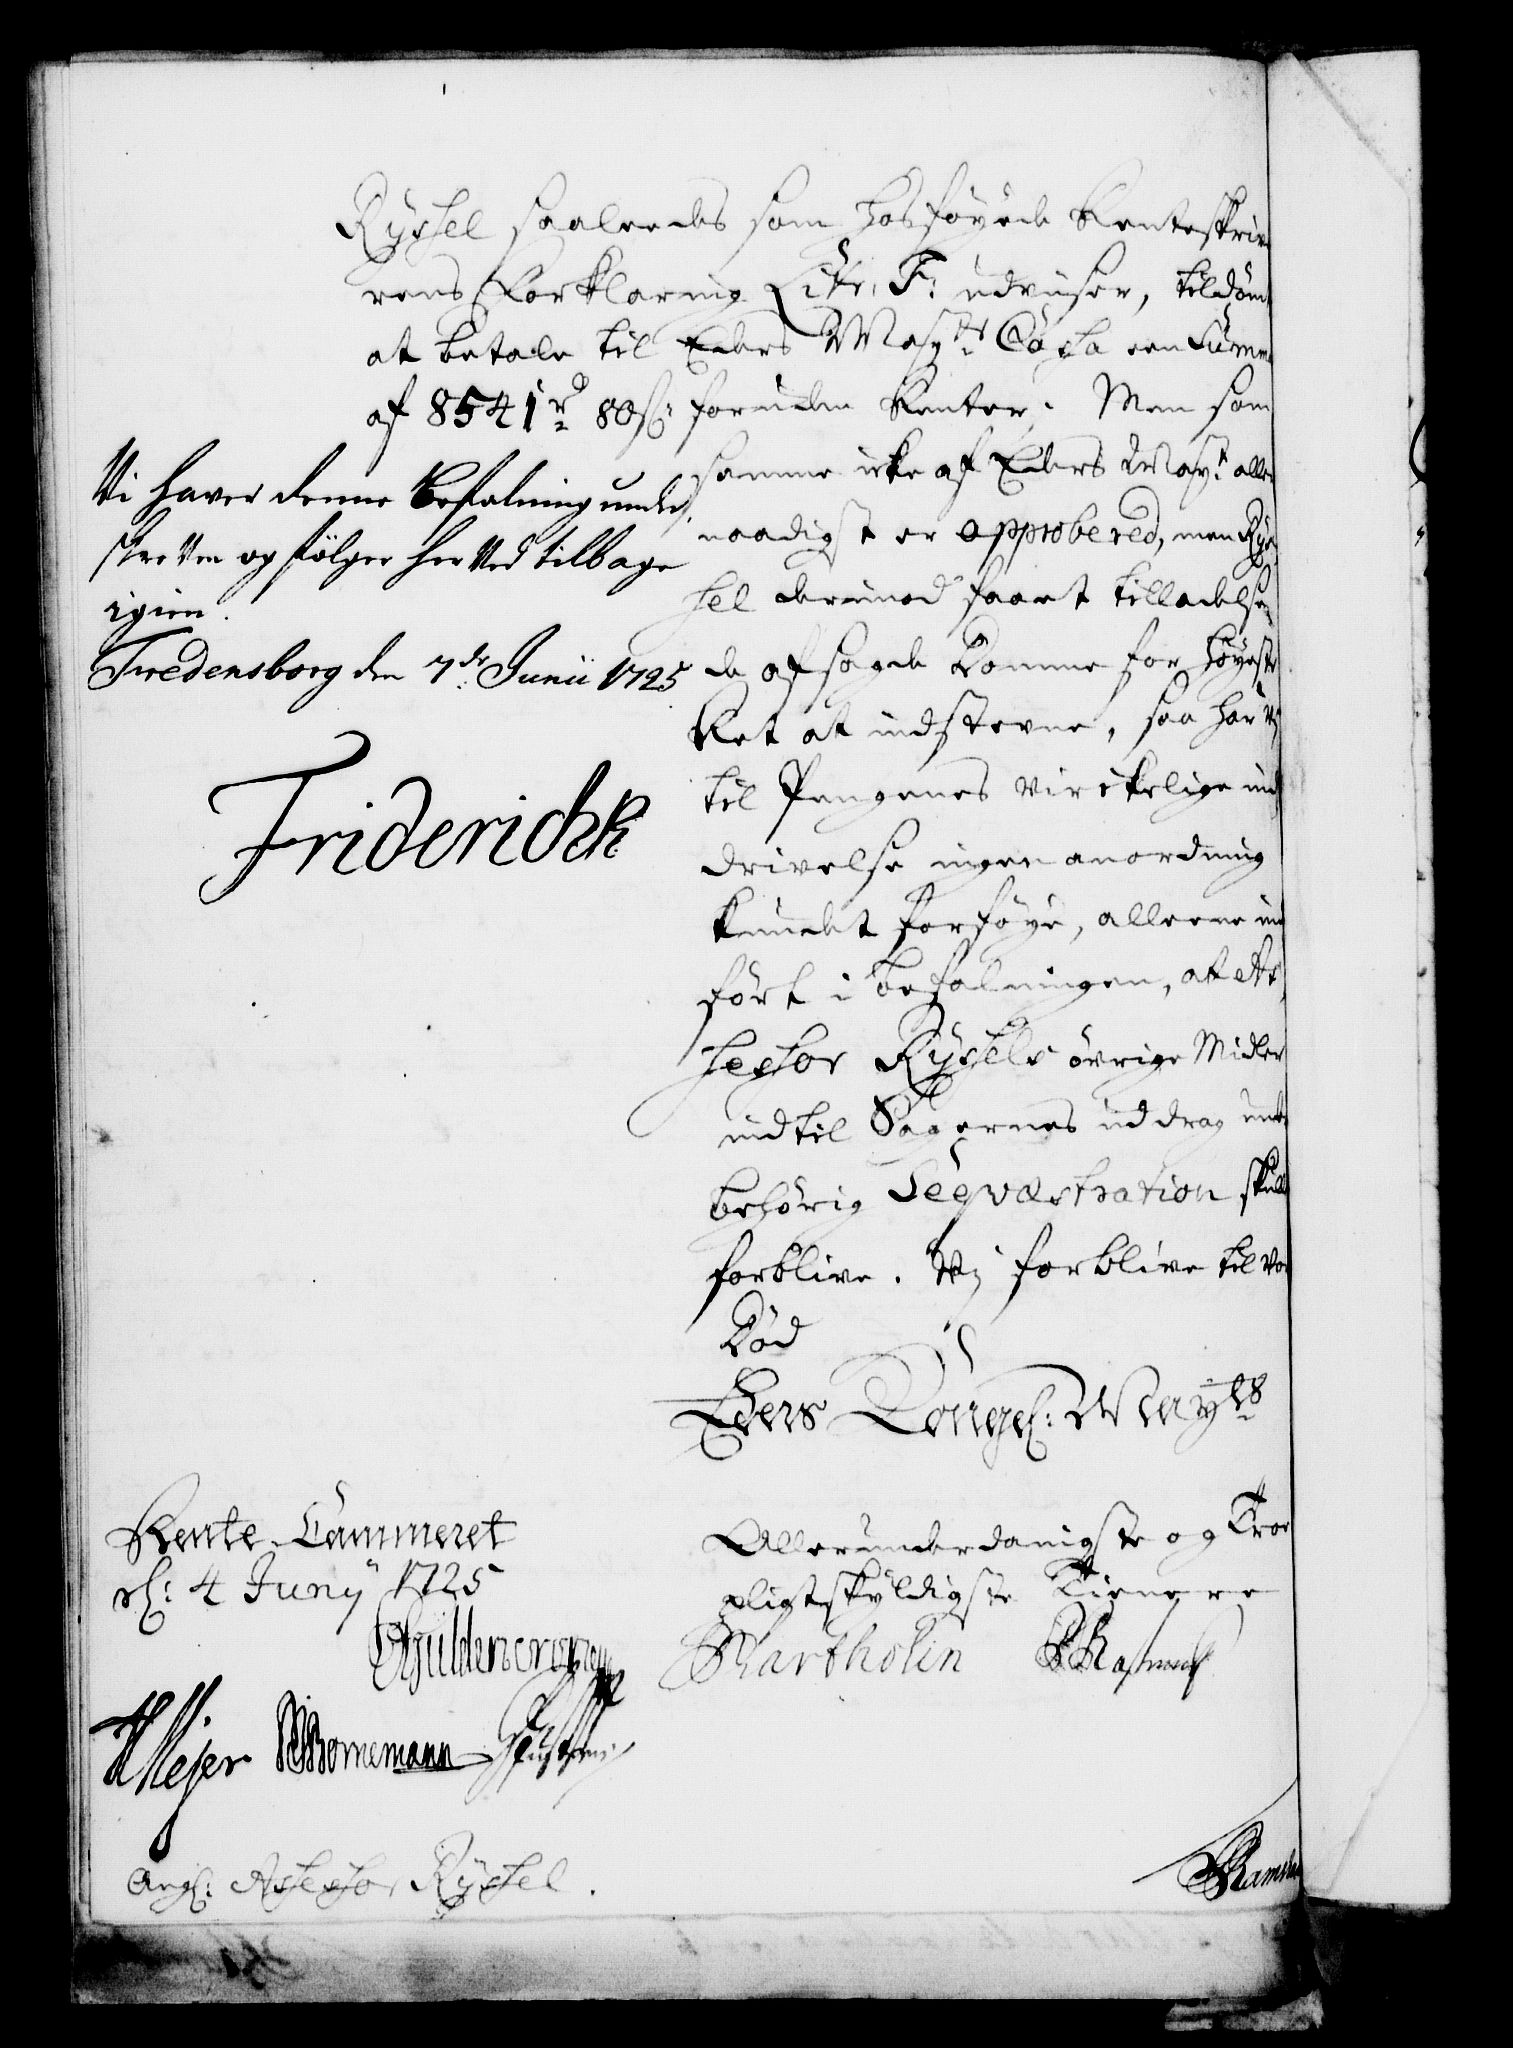 Ryssel saaleedes som hosföyede Renteskrive
rens Forklaring Litr. F: udviiser, tildömt
at betale til Eders Mayts Cassa een Summa
af 8541 rd 80 s: foruden Renter. Men som
samme icke af Eders Mayt aller
naadigst er approbered, men Rys
sel derimod faaet tilladelse
de afsagde Domme for Höyeste
Ret at indstevne, saa har Vj
til Pengenes virckelige ind
drivelse ingen anordning
kundet forföye, alleene ind
fört i befalningen, at As
sessor Ryssels övrige Midler
indtil Sagernes uddrag under
behörig Seqvæstration skulle
forblive. Vj forblive til vor
Död
Eders Kongel: Mayts
Allerunderdanigste og Troe
pligtskyldigste Tienere
Bartholin
Vi haver denne Befalning under
skreven og fölger her ved tilbage
igien.
Fredensborg den 7de Junii 1725
Friderich R
Rente-Cammeret
d: 4 Junij 1725
Güldencrone
Meyer Bornemann
Ang: Assessor Ryssel.